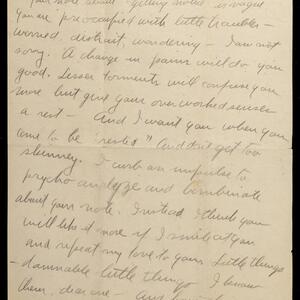 Your note about "getting settled" is vague
You are preoccupied with little troubles -
worried, distrait, wondering - I am not
sorry. A change in pains will do you
good. Lesser torments will confuse you
more but give your overworked senses
a rest - And I want you when you
come to be "rested" And don't get too
skinney. I curb an impulse to
psycho-analyze and bombinate
about your note. Instead I think you
will like it more if I smile at you
and repeat my love to your little things
- damnable little things I know
them, dear one - And